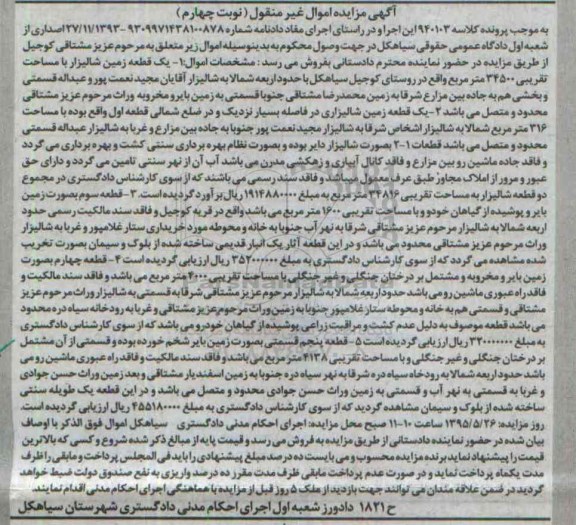 آگهی مزایده اموال غیر منقول (نوبت چهارم)
به موجب پرونده کلاسه ۹۴۰۱۰۳ این اجرا و در راستای اجرای مفاد دادنامه شماره ۹۳۰۹۹۷۱۴۳۸۱۰۰۸۷۸ -۲۷/۱۱/۱۳۹۳ اصداری از
شعبه اول دادگاه عمومی حقوقی سیاهکل در جهت وصول محکوم به بدینوسیله اموال زیر متعلق به مرحوم عزیز مشتاقی کوجیل
از طریق مزایده در حضور نماینده محترم دادستانی بفروش می رسد : مشخصات اموال:۱- یک قطعه زمین شالیزار با مساحت
تقریبی ۳۴۵۰۰ متر مربع واقع در روستای کوجیل سیاهکل با حدود اربعه شمالا به شالیزار آقایان مجید نعمت پور و عبداله قسمتی
و بخشی هم به جاده بین مزارع شرقا به زمین محمدرضا مشتاقی جنوبا قسمتی به زمین بایر و مخروبه وراث مرحوم عزیز مشتاقی
محدود و متصل می باشد ۲-یک قطعه زمین شالیزاری در فاصله بسیار نزدیک و در ضلع شمالی قطعه اول واقع بوده با مساحت
۳۱۶ متر مربع شمالا به شالیزار اشخاص شرقا به شالیزار مجید نعمت پور جنوبا به جاده بین مزارع و غربا به شالیزار عبداله قسمتی
محدود و متصل می باشد قطعات ۱-۲ بصورت شالیزار دایر بوده و بصورت نظام بهره برداری سنتی کشت و بهره برداری می گردد
و فاقد جاده ماشین رو بین مزارع و فاقد کانال آبیاری و زهکشی مدرن می باشد آب آن از نهر سنتی تامین می گردد و دارای حق
عبور و مرور از املاک مجاور طبق عرف معمول میباشد و فاقد سند رسمی می باشند که از سوی کارشناس دادگستری در مجموع
دو قطعه شالیزار به مساحت تقریبی ۳۴۸۱۶ متر مربع به مبلغ ۱۹۱۴۸۸۰۰۰۰ ریال بر آورد گردیده است. ۳- قطعه سوم بصورت زمین
بایر و پوشیده از گیاهان خودرو با مساحت تقریبی ۱۶۰۰ متر مربع می باشد واقع در قریه کوجیل و فاقد سند مالکیت رسمی حدود
اربعه شمالا به شالیزار مرحوم عزیز مشتاقی شرقا به نهر آب جنوبا به خانه و محوطه مورد خریداری ستار غلامپور و غربا به شالیزار
وراث مرحوم عزیز مشتاقی محدود می باشد و در این قطعه آثار یک انبار قدیمی ساخته شده از بلوک و سیمان بصورت تخریب
شده مشاهده می گردد که از سوی کارشناس دادگستری به مبلغ ۳۵۲۰۰۰۰۰۰ ریال ارزیابی گردیده است ۴- قطعه چهارم بصورت
زمین بایر و مخروبه و مشتمل بر درختان جنگلی و غیر جنگلی با مساحت تقریبی ۴۰۰۰ متر مربع می باشد و فاقد سند مالکیت و
فاقد راه عبوری ماشین رو می باشد حدود اربعه شمالا به شالیزار مرحوم عزیز مشتاقی شرقا به قسمتی به شالیزار وراث مرحوم عزیز
مشتاقی و قسمتی هم به خانه و محوطه ستار غلامپور جنوبا به زمین وراث مرحوم عزیز مشتاقی و غربا به رودخانه سیاه دره محدود
می باشد قطعه موصوف به دلیل عدم کشت و مراقبت زراعی پوشیده از گیاهان خودرو می باشد که از سوی کارشناس دادگستری
به مبلغ ۳۲۰۰۰۰۰۰۰ ریال ارزیابی گردیده است ۵- قطعه پنجم قسمتی بصورت زمین بایر شخم خورده بوده و قسمتی از آن مشتمل
بر درختان جنگلی و غیر جنگلی و با مساحت تقریبی ۴۱۳۸ متر مربع می باشد و فاقد سند مالکیت و فاقد راه عبوری ماشین رو می
باشد حدود اربعه شمالا به رودخاه سیاه دره شرقا به نهر سیاه دره جنوبا به زمین اسفندیار مشتاقی و بعد زمین وراث حسن جوادی
و غربا به قسمتی به نهر آب و قسمتی به زمین وراث حسن جوادی محدود و متصل می باشد و در این قطعه یک طویله سنتی
ساخته شده از بلوک و سیمان مشاهده گردید که از سوی کارشناس دادگستری به مبلغ ۴۵۵۱۸۰۰۰۰ ریال ارزیابی گردیده است.
روز مزایده: ۱۳۹۵/۵/۲۶ ساعت ۱۰-۱۱ صبح محل مزایده: اجرای احکام مدنی دادگستری سیاهکل اموال فوق الذکر با اوصاف
بیان شده در حضور نماینده دادستانی از طریق مزایده به فروش می رسد و قیمت پایه از مبالغ ذکر شده شروع و کسی که بالاترین
قیمت را پیشنهاد نماید برنده مزایده محسوب و می بایست ده درصد مبلغ پیشنهادی را باید فی المجلس پرداخت و مابقی را ظرف
مدت یکماه پرداخت نماید و در صورت عدم پرداخت مابقی ظرف مدت مقرر ده درصد واریزی به نفع صندوق دولت ضبط خواهد
گردید در ضمن علاقه مندان می توانند جهت بازدید از ملک ۵ روز قبل از مزایده با هماهنگی اجرای احکام مدنی اقدام نمایند.
ح ۱۸۲۱ دادورز شعبه اول اجرای احکام مدنی دادگستری شهرستان سیاهکل